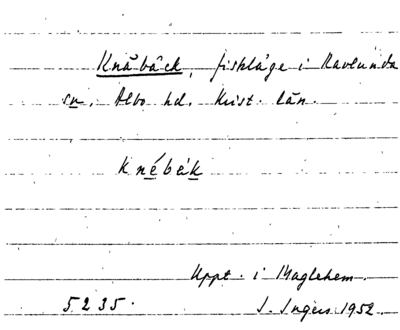 Knäbäck, fiskläge i Ravlunda
sn, Albo hd, Krist. län.
knébék
Uppt. i Maglehem.
5235. I. Ingers 1952.